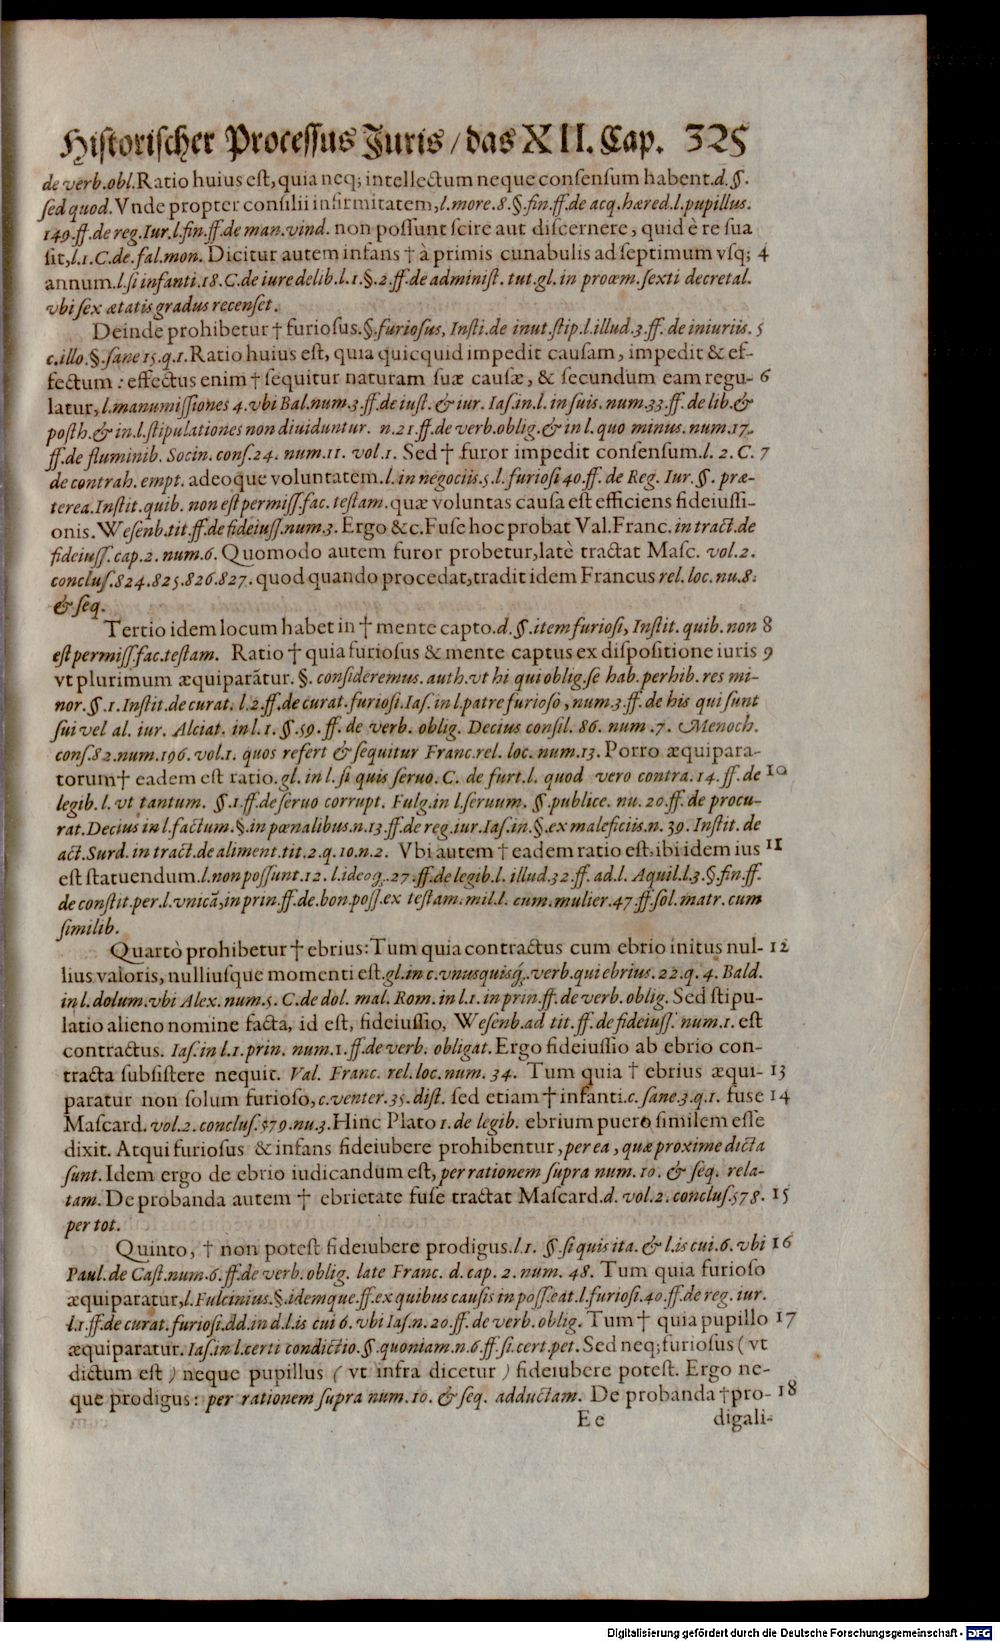 Historischer Processus Juris/das XII. Cap. 325
de verb. obl. Ratio huius est, quia neq; intellectum neque consensum habent. d. §.
sed quod. Vnde propter consilii infirmitatem, l. more. 8. §. fin. ff. de acq. hæred. l. pupillus.
149. ff. de reg. Iur. l. fin. ff. de man. vind. non possunt scire aut discernere, quid è re sua
sit, l. 1. C. de fal. mon. Dicitur autem infans † à primis cunabulis ad septimum vsq; 4
annum. l. si infanti. 18. C. de iure delib. l. 1. §. 2. ff. de administ. tut. gl. in proœm. sexti decretal.
vbi sex ætatis gradus recenset.
Deinde prohibetur † furiosus. §. furiosus, Insti. de inut. stip. l. illud. 3. ff. de iniuriis. 5
c. illo. §. sane 15. q. 1. Ratio huius est, quia quicquid impedit causam, impedit & ef-
fectum: effectus enim † sequitur naturam suæ causæ, & secundum eam regu- 6
latur, l. manumissiones 4. vbi Bal. num. 3. ff. de iust. & iur. Ias. in. l. in suis. num. 33. ff. de lib. &
posth. & in. l. stipulationes non diuiduntur. n. 21. ff. de verb. oblig. & in l. quo minus. num. 17.
ff. de fluminib. Socin. cons. 24. num. 11. vol. 1. Sed † furor impedit consensum. l. 2. C. 7
de contrah. empt. adeoque voluntatem. l. in negociis. 5. l. furiosi 40. ff. de Reg. Iur. §. præ-
terea. Instit. quib. non est permiss. fac. testam. quæ voluntas causa est efficiens fideiussi-
onis. Wesenb. tit. ff. de fideiuss. num. 3. Ergo &c. Fuse hoc probat Val. Franc. in tract. de
fideiuss. cap. 2. num. 6. Quomodo autem furor probetur, latè tractat Masc. vol. 2.
conclus. 824. 825. 826. 827. quod quando procedat, tradit idem Francus rel. loc. nu. 8.
& seq.
Tertio idem locum habet in † mente capto. d. §. item furiosi, Instit. quib. non 8
est permiss. fac. testam. Ratio † quia furiosus & mente captus ex dispositione iuris 9
vt plurimum æquiparãtur. §. consideremus. auth. vt hi qui oblig. se hab. perhib. res mi-
nor. §. 1. Instit. de curat. l. 2. ff. de curat. furiosi. Ias. in l. patre furioso, num. 3. ff. de his qui sunt
sui vel al. iur. Alciat. in l. 1. §. 59. ff. de verb. oblig. Decius consil. 86. num. 7. Menoch.
cons. 82. num. 196. vol. 1. quos refert & sequitur Franc. rel. loc. num. 13. Porro æquipara-
torum † eadem est ratio. gl. in l. si quis seruo. C. de furt. l. quod vero contra. 14. ff. de 10
legib. l. vt tantum. §. 1. ff. de seruo corrupt. Fulg. in l. seruum. §. publice. nu. 20. ff. de procu-
rat. Decius in l. factum. §. in pœnalibus. n. 13. ff. de reg. iur. Ias. in. §. ex maleficiis. n. 39. Instit. de
act. Surd. in tract. de aliment. tit. 2. q. 10. n. 2. Vbi autem † eadem ratio est, ibi idem ius 11
est statuendum. l. non possunt. 12. l. ideoq;. 27. ff. de legib. l. illud. 32. ff. ad. l. Aquil. l. 3. §. fin. ff.
de constit. per. l. vnicã, in prin. ff. de. bon. poss. ex testam. mil. l. cum. mulier. 47. ff. sol. matr. cum
similib.
Quartò prohibetur † ebrius: Tum quia contractus cum ebrio initus nul- 12
lius valoris, nulliusque momenti est. gl. in c. vnusquisq;. verb. qui ebrius. 22. q. 4. Bald.
in l. dolum. vbi Alex. num. 5. C. de dol. mal. Rom. in l. 1. in prin. ff. de verb. oblig. Sed stipu-
latio alieno nomine facta, id est, fideiussio, Wesenb. ad tit. ff. de fideiuss. num. 1. est
contractus. Ias. in l. 1. prin. num. 1. ff. de verb. obligat. Ergo fideiussio ab ebrio con-
tracta subsistere nequit. Val. Franc. rel. loc. num. 34. Tum quia † ebrius æqui- 13
paratur non solum furioso, c. venter. 35. dist. sed etiam † infanti. c. sane. 3. q. 1. fuse 14
Mascard. vol. 2. conclus. 579. nu. 3. Hinc Plato 1. de legib. ebrium puero similem esse
dixit. Atqui furiosus & infans fideiubere prohibentur, per ea, quæ proxime dicta
sunt. Idem ergo de ebrio iudicandum est, per rationem supra num. 10. & seq. rela-
tam. De probanda autem † ebrietate fuse tractat Mascard. d. vol. 2. conclus. 578. 15
per tot.
Quinto, † non potest fideiubere prodigus. l. 1. §. si quis ita. & l. is cui. 6. vbi 16
Paul. de Cast. num. 6. ff. de verb. oblig. late Franc. d. cap. 2. num. 48. Tum quia furioso
æquiparatur, l. Fulcinius. §. idemque. ff. ex quibus causis in poss. eat. l. furiosi. 40. ff. de reg. iur.
l. 1. ff. de curat. furiosi. dd. in d. l. is cui 6. vbi Ias. n. 20. ff. de verb. oblig. Tum † quia pupillo 17
æquiparatur. Ias. in l. certi condictio. §. quoniam. n. 6. ff. si. cert. pet. Sed neq; furiosus (vt
dictum est) neque pupillus (vt infra dicetur) fideiubere potest. Ergo ne-
que prodigus: per rationem supra num. 10. & seq. adductam. De probanda † pro- 18
Ee digali-
Digitalisierung gefördert durch die Deutsche Forschungsgemeinschaft - DFG